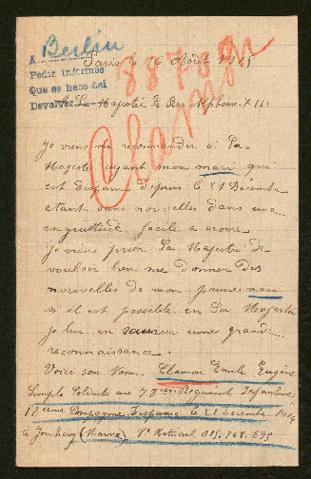 A Berlin
Pedir informes
Que se hace así
Devolver
8870 gr
Clamon
Paris le 16 Août 1915
Sa Majesté le Roi Alphonse XIII
Je viens me recommander à Sa
Majesté ayant mon mari qui
est disparu depuis le 21 Décembre
étant sans nouvelles dans une
inquiétude facile a croire
Je viens prier Sa Majesté de
vouloir bien me donner des
nouvelles de mon pauvre mari
s'il est possible en Sa Majesté
je lui en aurai une grande
reconnaissance.
Voici son Nom. Clamon Emile Eugène
Simple Soldat au Regiment Infanterie
12 eme Compagnie Disparu le 21 Decembre 1914
a Jonchery (Marne)